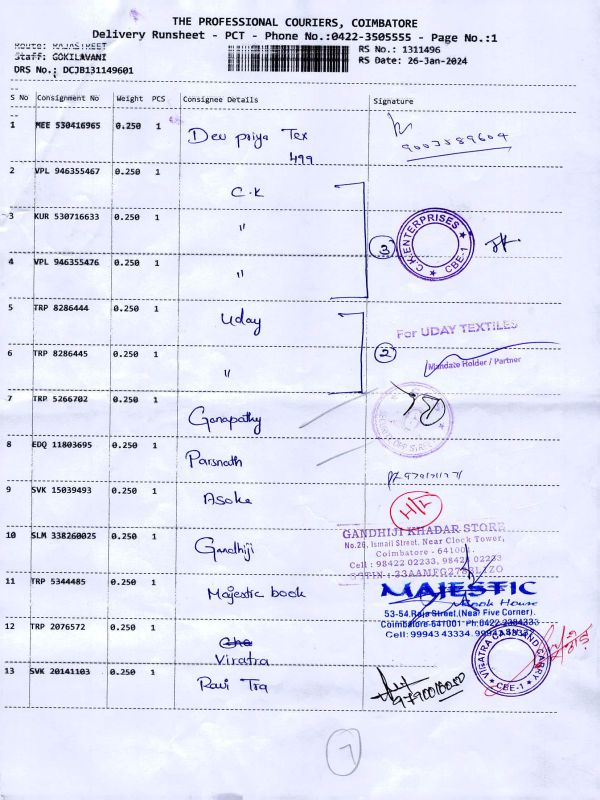 THE PROFESSIONAL COURIERS, COIMBATORE
Delivery Runsheet - PCT - Phone No.:0422-3505555 - Page No.:1
Route: RAJASTREET
Staff: GOKILAVANI
DRS No.: DCJB131149601
RS No.: 1311496
RS Date: 26-Jan-2024
S No Consignment No Weight PCS Consignee Details Signature
1 MEE 530416965 0.250 1 Dev priya Tex
499
9003589604
2 VPL 946355467 0.250 1 C.K
3 KUR 530716633 0.250 1 "
3
C.K ENTERPRISES ★ CBE-1 ★
4 VPL 946355476 0.250 1 "
5 TRP 8286444 0.250 1 Uday
For UDAY TEXTILES
6 TRP 8286445 0.250 1 "
2
Mandate Holder / Partner
7 TRP 5266702 0.250 1 Ganapathy
8 EDQ 11803695 0.250 1 Parsnath
9 SVK 15039493 0.250 1 Asoke
H/L
10 SLM 338260025 0.250 1 Gandhiji
GANDHIJI KHADAR STORE
No.26, Ismail Street, Near Clock Tower,
Coimbatore - 641001.
Cell : 98422 02233, 98424 02233
11 TRP 5344485 0.250 1 Majestic book
MAJESTIC
Book House
53-54, Raja Street, (Near Five Corner).
Coimbatore-641001 Ph:0422-2384333
Cell: 99943 43334, 99943
12 TRP 2076572 0.250 1
Viratra
VIRATRA CASH AND CARRY ★ CBE-1 ★
13 SVK 20141103 0.250 1 Ravi Tra
7